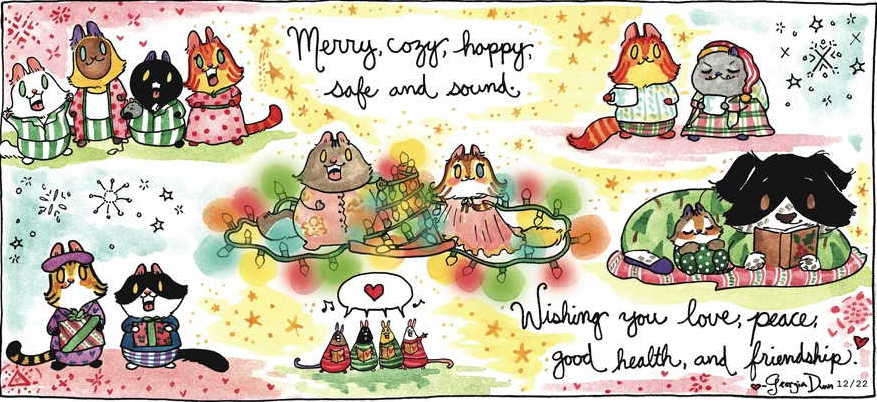 Merry, cozy, happy,
safe and sound.
Wishing you love, peace,
good health, and friendship.
-Georgia Dunn 12/22